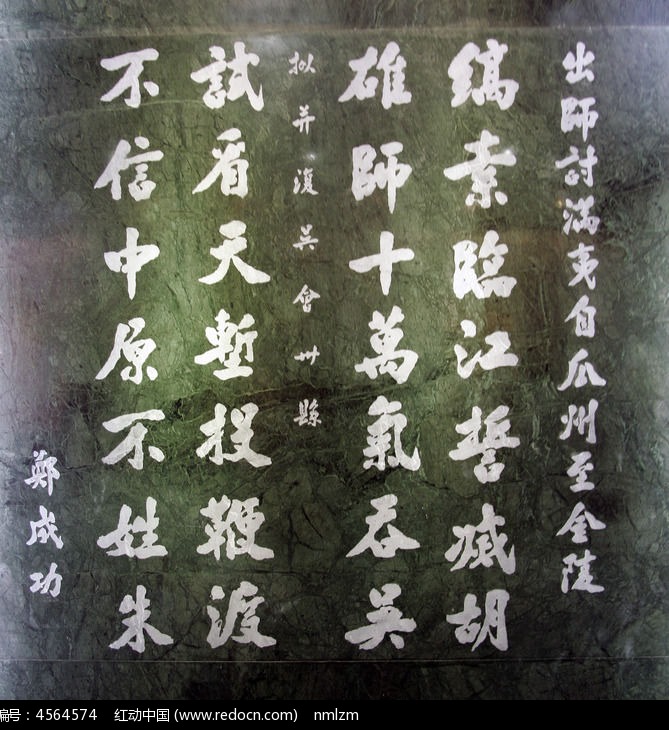 出師討滿夷自瓜州至金陵
縞素臨江誓滅胡
雄師十萬氣吞吳
拟并復吳會卅縣
試看天塹投鞭渡
不信中原不姓朱
鄭成功
编号：4564574 红动中国 (www.redocn.com) nmlzm